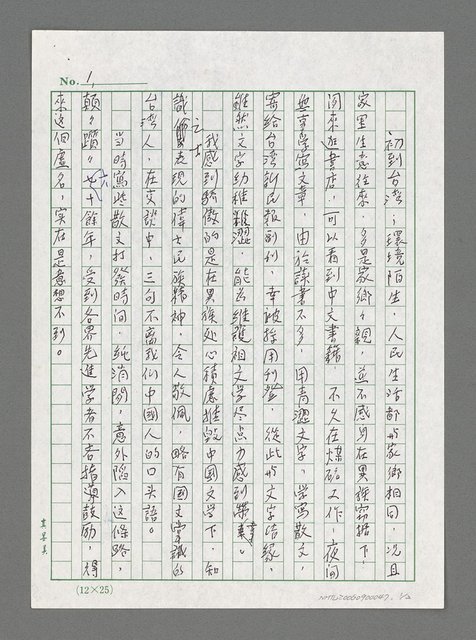 No. 1
初到台湾，環境陌生，人民生活都与家鄉相同，况且
家里生意往來，多是家鄉親，並不感身在異族窃据下。
閲來在書店，可以看到中文書籍 不久在煤砿工作，夜间
無事學寫文章，由於謀業不多，用青澀文字，學寫散文，
寄給台湾新民報副刊，幸被採用刊登，從此与文字结緣，
雖然文字幼稚難澀，能為維護祖文學尽点力感到榮幸。
我感到骄傲的是在異族处心積慮摧毀中國文学下，知
識之士表現的偉大民族精神，令人敬佩，略有國文常識的
台湾人，在交談中，三句不离我们中國人的口头語。
当時寫些散文打發時间，純消閑，意外陷入這條路，
顛々躓々六十餘年，受到各界先進学者不吝指導鼓励，得
來这個虛名，实在是意想不到。
(12×25)
NMTL20060900047, 1/2